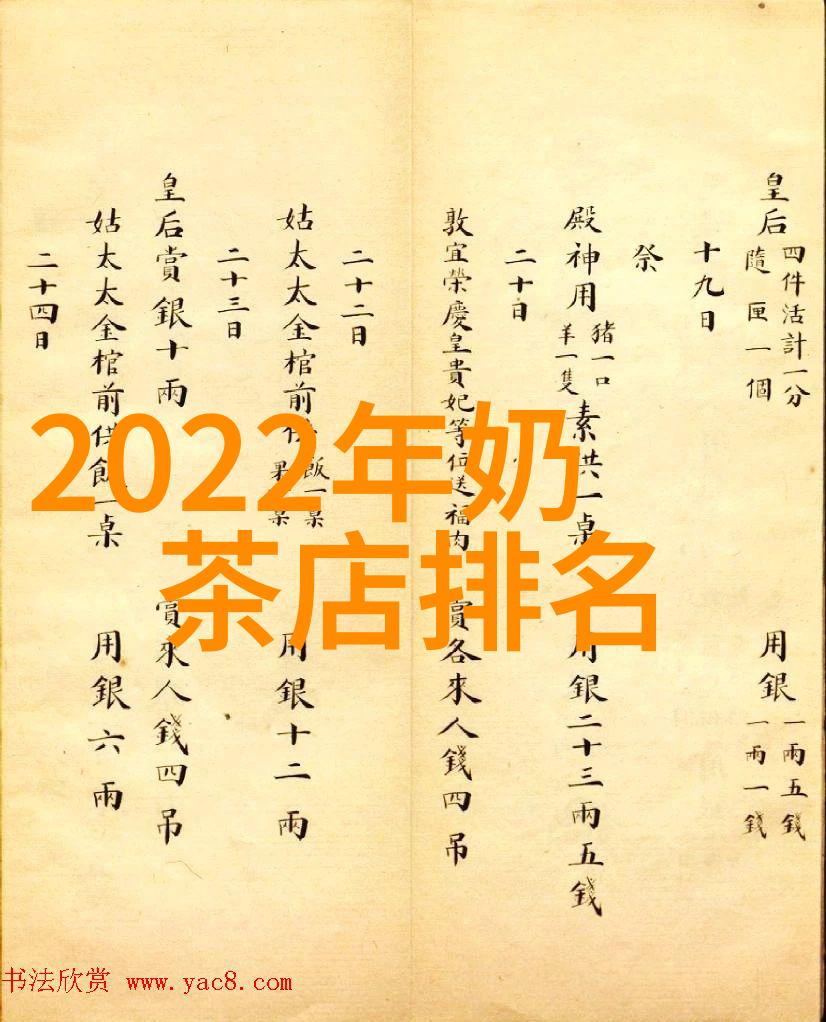 皇后 四件活計一分 隨匣一個 用銀 一兩五錢 一兩一錢
十九日
祭
殿神用 豬一口 羊一隻 素供一桌 用銀二十三兩五錢
二十日
敦宜榮慶皇貴妃等位送福肉 賞各來人錢四吊
二十二日
姑太太金棺前供 飯一桌 果一桌 用銀十二兩
二十三日
皇后賞銀十兩 賞來人錢四吊
姑太太金棺前供飯一桌 用銀六兩
二十四日
2022年奶
茶店排名
书法欣赏 www.yac8.com